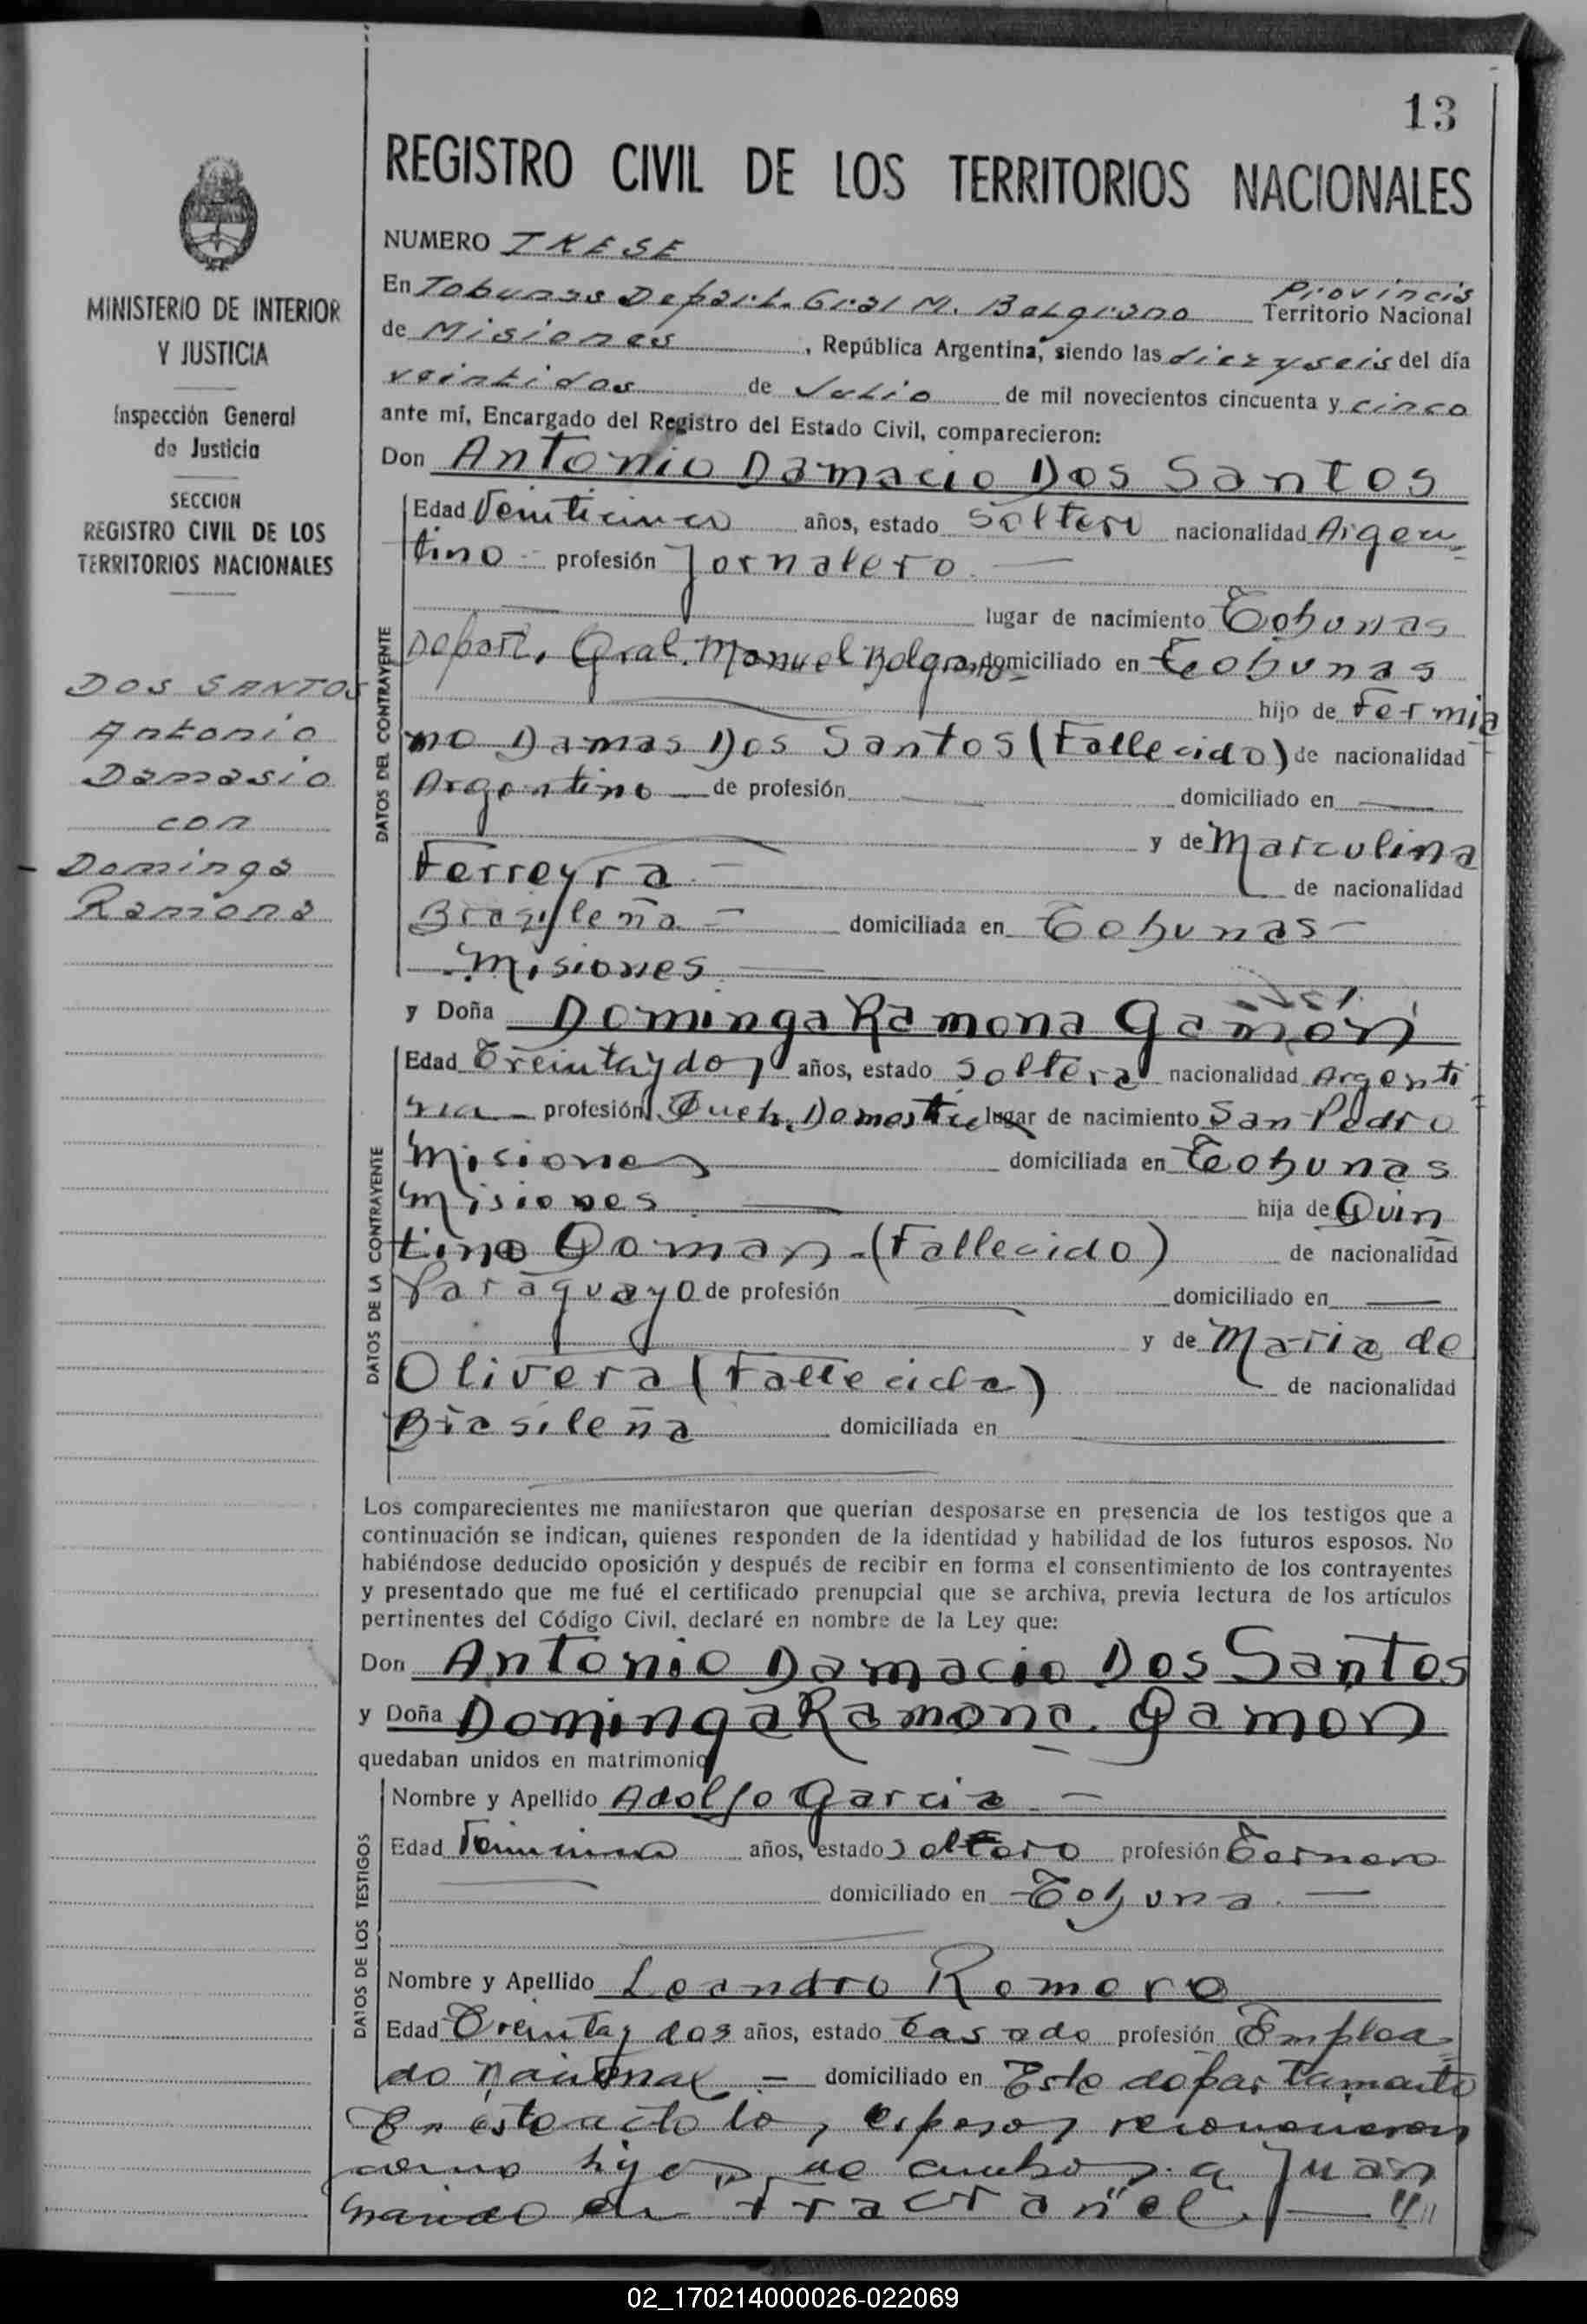 13
REGISTRO CIVIL DE LOS TERRITORIOS NACIONALES
MINISTERIO DE INTERIOR
Y JUSTICIA
Inspección General
de Justicia
SECCION
REGISTRO CIVIL DE LOS
TERRITORIOS NACIONALES
DOS SANTOS
Antonio
Damasio
con
Dominga
Ramona
NUMERO TRESE
Provincia
En Tobunas Depart. Gral M. Belgrano Territorio Nacional
de Misiones, República Argentina, siendo las diez y seis del día
veintidos de Julio de mil novecientos cincuenta y cinco
ante mí, Encargado del Registro del Estado Civil, comparecieron:
Don Antonio Damacio Dos Santos
DATOS DEL CONTRAYENTE
Edad Veinticinco años, estado Soltero nacionalidad Argen-
tino - profesión Jornalero
lugar de nacimiento Tobunas
Depart. Gral. Manuel Belgrano domiciliado en Tobunas
hijo de Fermia
no Damas Dos Santos (Fallecido) de nacionalidad
Argentino de profesión domiciliado en
y de Marculina
Ferreyra - de nacionalidad
Brasileña - domiciliada en Tobunas -
Misiones
y Doña Dominga Ramona Gamón
DATOS DE LA CONTRAYENTE
Edad Treinta y dos años, estado Soltera nacionalidad Argenti
na - profesión Queh. Domestic lugar de nacimiento San Pedro
Misiones domiciliada en Tobunas
Misiones hija de Quin
tino Goman - (Fallecido) de nacionalidad
Paraguayo de profesión domiciliado en
y de Maria de
Olivera (Fallecida) de nacionalidad
Brasileña domiciliada en
Los comparecientes me manifestaron que querían desposarse en presencia de los testigos que a
continuación se indican, quienes responden de la identidad y habilidad de los futuros esposos. No
habiéndose deducido oposición y después de recibir en forma el consentimiento de los contrayentes
y presentado que me fué el certificado prenupcial que se archiva, previa lectura de los artículos
pertinentes del Código Civil, declaré en nombre de la Ley que:
Don Antonio Damacio Dos Santos
y Doña Dominga Ramona Gamón
quedaban unidos en matrimonio
DATOS DE LOS TESTIGOS
Nombre y Apellido Adolfo Garcia -
Edad años, estado soltero profesión
domiciliado en Tobuna -
Nombre y Apellido Leandro Romero
Edad Treinta y dos años, estado Casado profesión Emplea-
do Nacional - domiciliado en Este departamento
En este acto los esposos reconocieron
como hijo de ambos a Juan
nacido en Fracran el
02_170214000026-022069